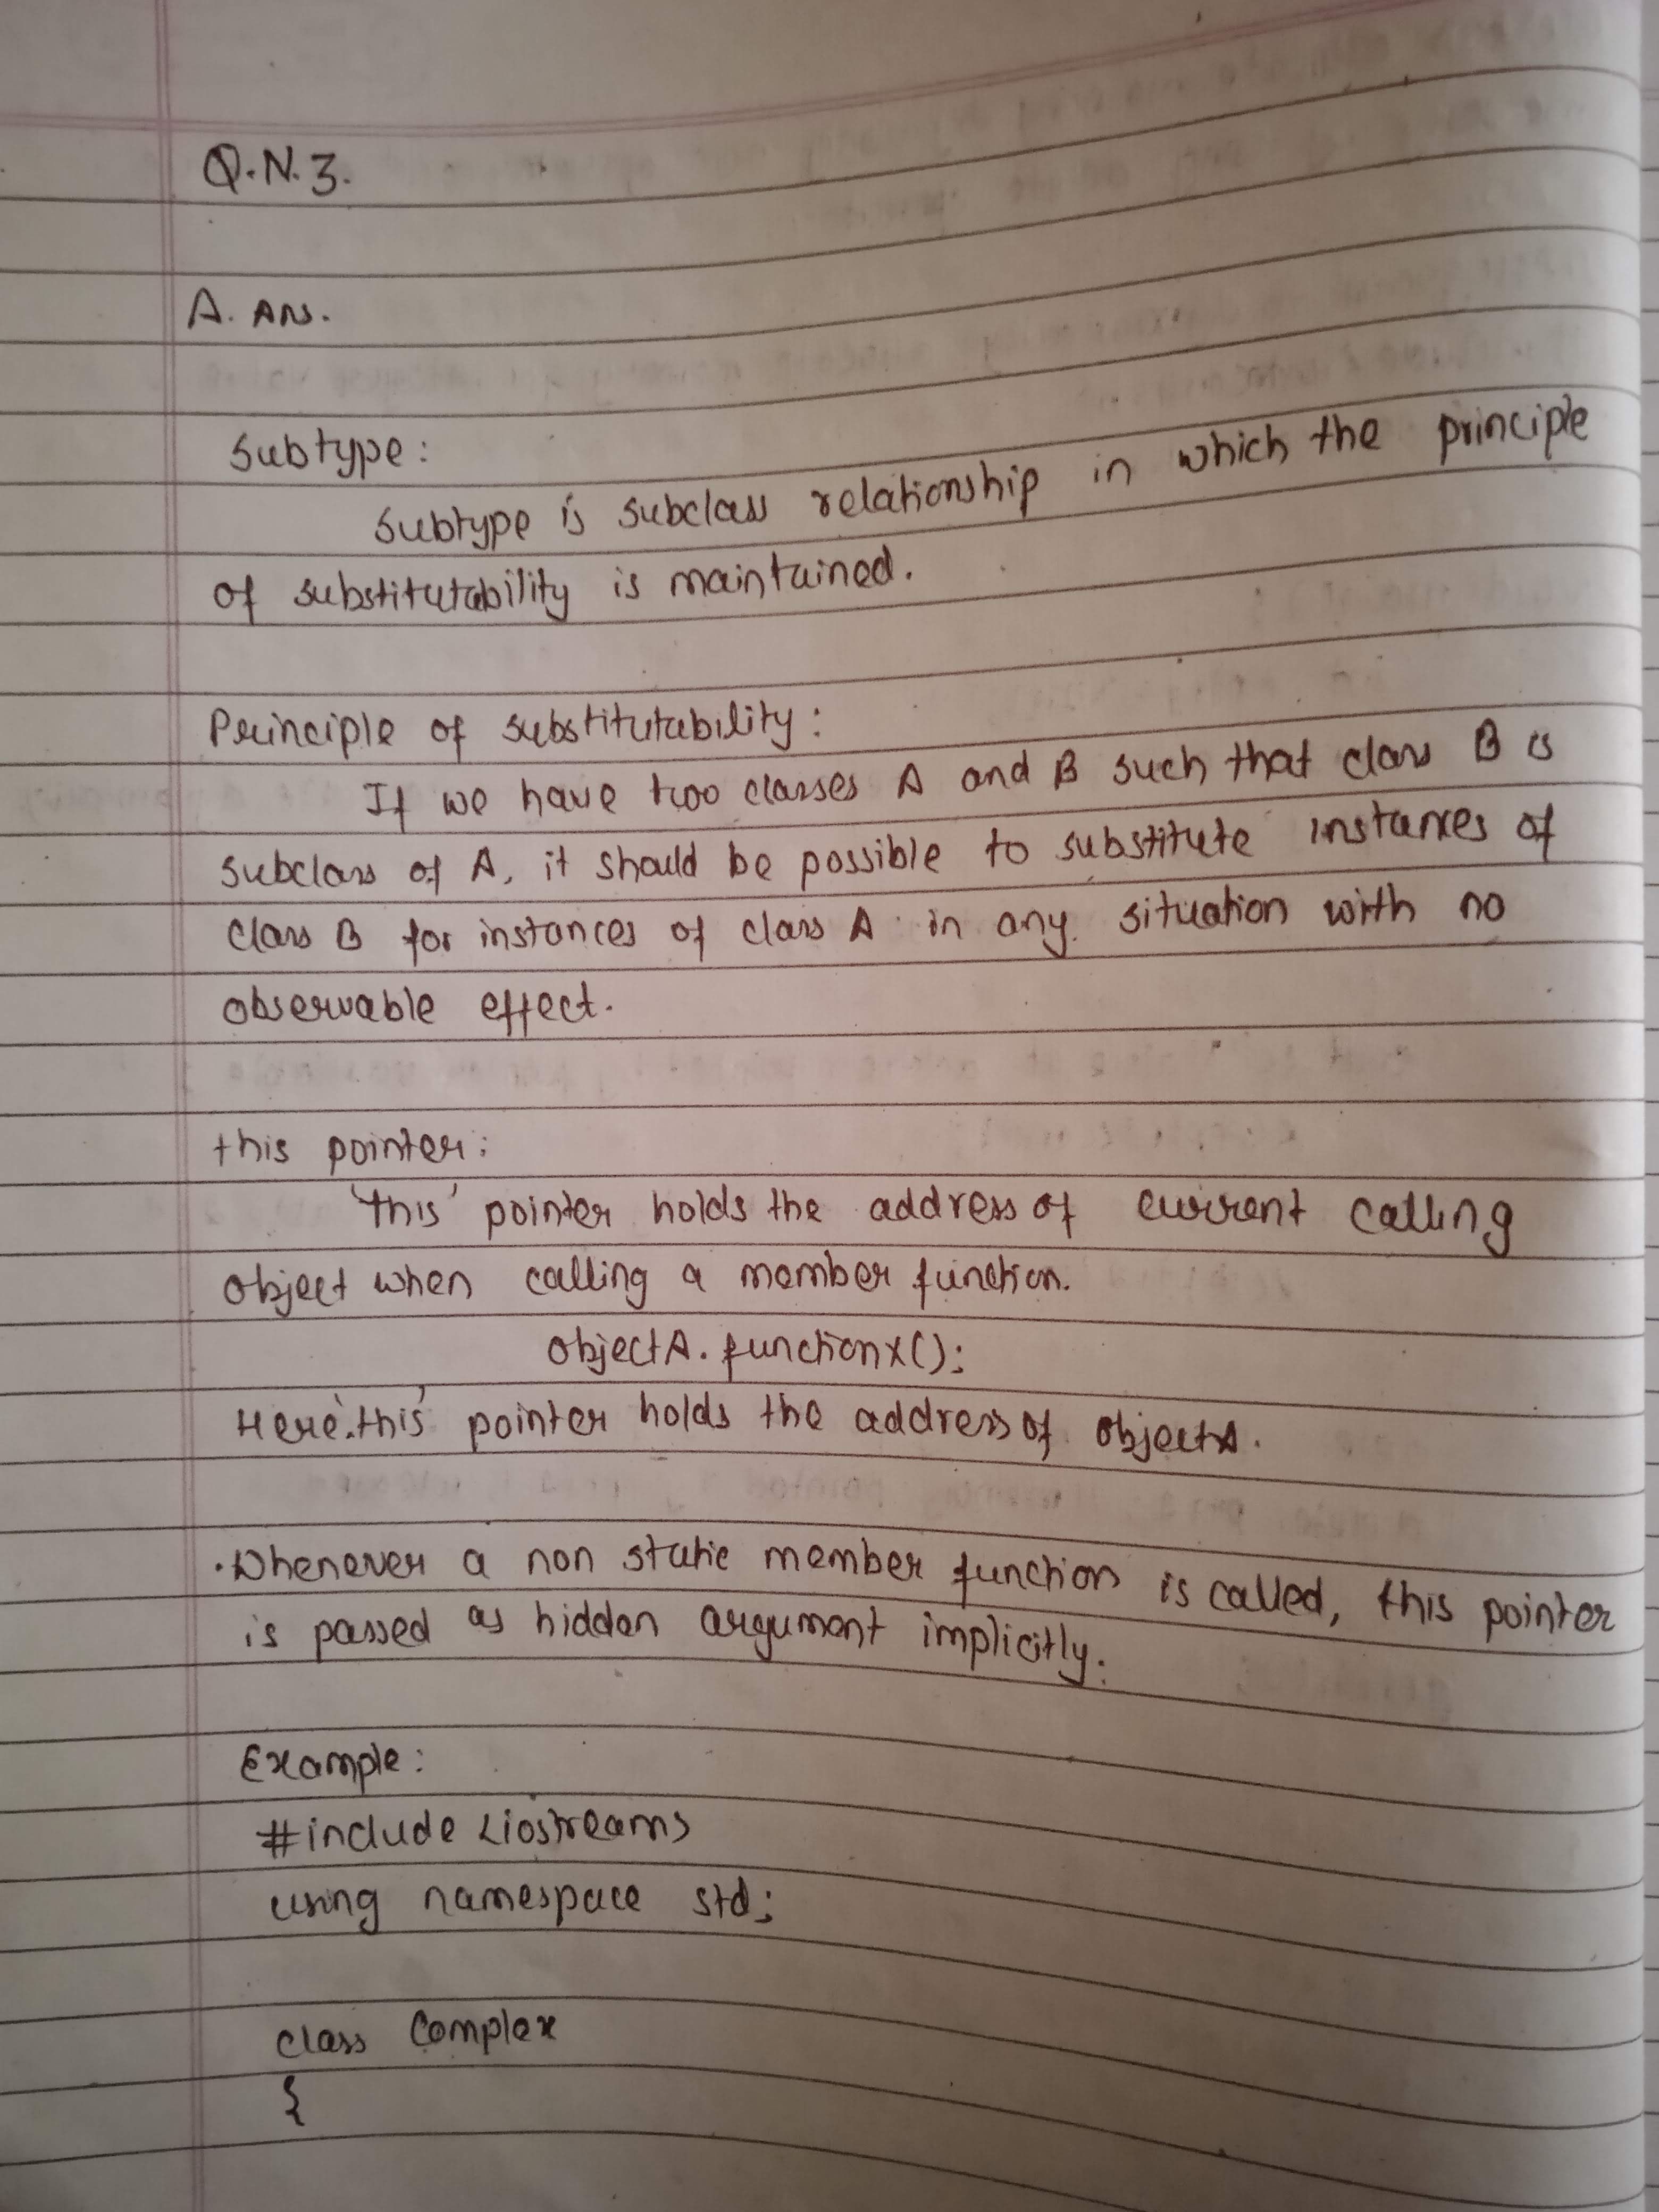 Q.N.3.
A. Ans.
Subtype:
Subtype is subclass relationship in which the principle
of substitutability is maintained.
Principle of substitutability:
If we have two classes A and B such that class B is
subclass of A, it should be possible to substitute instances of
class B for instances of class A in any situation with no
observable effect.
this pointer:
'this' pointer holds the address of current calling
object when calling a member function.
objectA.functionx();
Here 'this' pointer holds the address of objectA.
• Whenever a non static member function is called, this pointer
is passed as hidden argument implicitly.
Example:
#include <iostream>
using namespace std;
class Complex
{